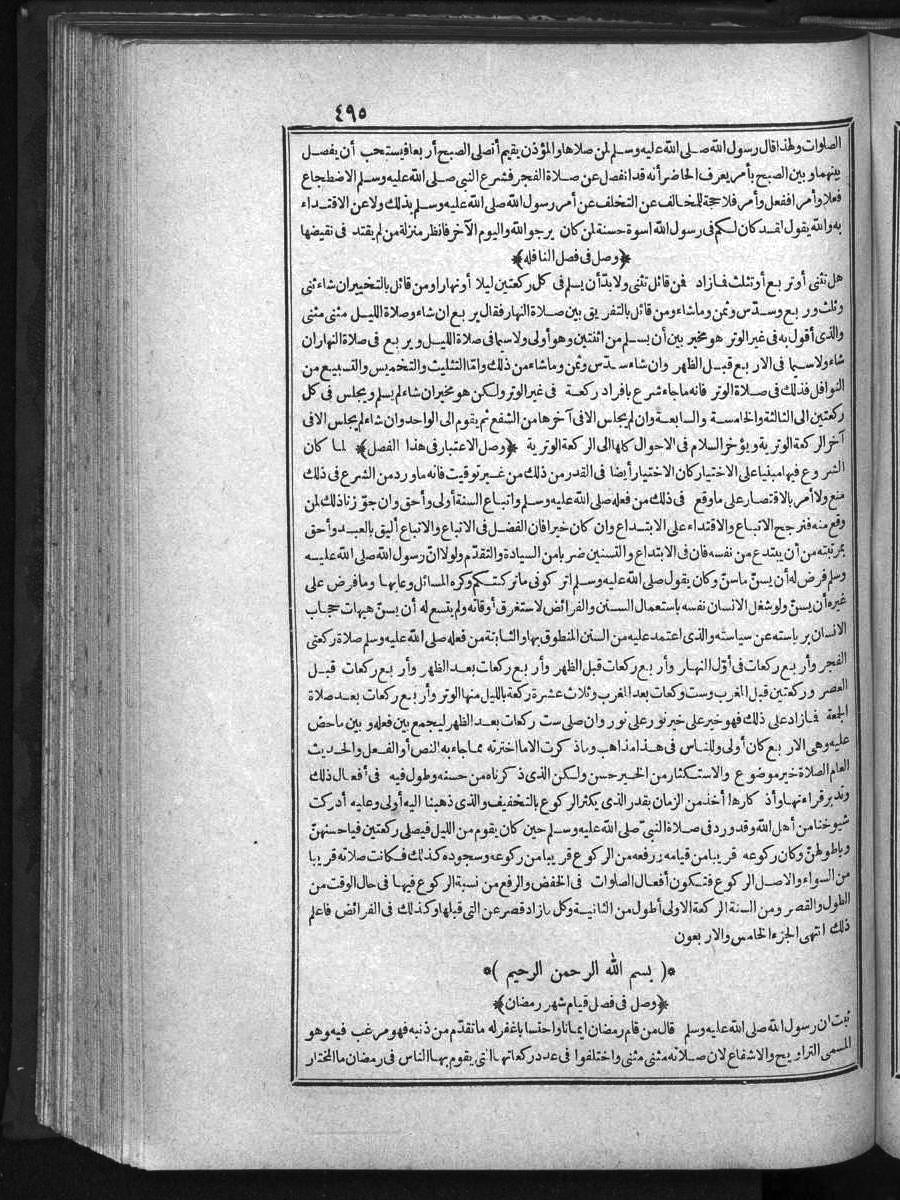 ٤٩٥
الصلوات ولهذا قال رسول الله صلى الله عليه وسلم لمن صلاها والمؤذن يقيم أتصلى الصبح أربعا فيستحب أن يفصل
بينهما وبين الصبح بأمر يعرف الحاضر أنه قد انفصل عن صلاة الفجر فشرع النبي صلى الله عليه وسلم الاضطجاع
فعلا وأمرا ففعل وأمر فلا حجة للمخالف عن التخلف عن أمر رسول الله صلى الله عليه وسلم بذلك ولا عن الاقتداء
به والله يقول لقد كان لكم فى رسول الله اسوة حسنة لمن كان يرجو الله واليوم الآخر فانظر منزلة من لم يقتد فى نقيضها
﴿وصل فى فصل النافلة﴾
هل تثنى أو تربع أو تثلث فما زاد فمن قائل تثنى ولا بدّ أن يسلم فى كل ركعتين ليلا أو نهارا ومن قائل بالتخيير ان شاء ثنى
وثلث وربع وسدّس وثمن وما شاء ومن قائل بالتفريق بين صلاة النهار فقال يربع ان شاء وصلاة الليل مثنى مثنى
والذى أقول به فى غير الوتر هو مخير بين أن يسلم من اثنتين وهو أولى ولا سيما فى صلاة الليل ويربع فى صلاة النهار ان
شاء ولا سيما فى الاربع قبل الظهر وان شاء سدّس وثمن وما شاء من ذلك وامّا التثليث والتخميس والتسبيع من
النوافل فذلك فى صلاة الوتر فانه ما جاء شرع بافراد ركعة فى غير الوتر ولكن هو مخير ان شاء لم يسلم ويجلس فى كل
ركعتين الى الثالثة والخامسة والسابعة وان لم يجلس الا فى آخرها من الشفع ثم يقوم الى الواحد وان شاء لم يجلس الا فى
آخر الركعة الوترية ويؤخر السلام فى الاحوال كلها الى الركعة الوترية ﴿وصل الاعتبار فى هذا الفصل﴾ لما كان
الشروع فيها مبنيا على الاختيار كان الاختيار أيضا فى القدر من ذلك من غير توقيت فانه ما ورد من الشرع فى ذلك
منع ولا أمر بالاقتصار على ما وقع فى ذلك من فعله صلى الله عليه وسلم واتباع السنة أولى وأحق وان جوّزنا ذلك لمن
وقع منه فنرجح الاتباع والاقتداء على الابتداع وان كان خيرا فان الفضل فى الاتباع والاتباع أليق بالعبد وأحق
بمرتبته من أن يبتدع من نفسه فان فى الابتداع والتسنين ضربا من السيادة والتقدّم ولولا انّ رسول الله صلى الله عليه
وسلم فرض له أن يسنّ ما سنّ وكان يقول صلى الله عليه وسلم اتركونى ما تركتكم وكره المسائل وعابها وما فرض على
غيره أن يسنّ ولو شغل الانسان نفسه باستعمال السنن والفرائض لاستغرق أوقاته ولم يتسع له أن يسنّ هيهات حجاب
الانسان برياسته عن سياسته والذى اعتمد عليه من السنن المنطوق بها والثابتة من فعله صلى الله عليه وسلم صلاة ركعتى
الفجر وأربع ركعات فى أوّل النهار وأربع ركعات قبل الظهر وأربع ركعات بعد الظهر وأربع ركعات قبل
العصر وركعتين قبل المغرب وست ركعات بعد المغرب وثلاث عشرة ركعة بالليل منها الوتر وأربع ركعات بعد صلاة
الجمعة فما زاد على ذلك فهو خير على خير نور على نور وان صلى ست ركعات بعد الظهر ليجمع بين فعله وبين ما حض
عليه وهى الاربع كان أولى وللناس فى هذا مذاهب وما ذكرت الا ما اخترته مما جاء به النص أو الفعل والحديث
العام الصلاة خير موضوع والاستكثار من الخير حسن ولكن الذى ذكرناه من حسنه وطول فيه فى أفعال ذلك
وتدبر قراءتها وأذكارها أخذ من الزمان بقدر الذى يكثر الركوع بالتخفيف والذى ذهبنا اليه أولى وعليه أدركت
شيوخنا من أهل الله وقد ورد فى صلاة النبىّ صلى الله عليه وسلم حين كان يقوم من الليل فيصلى ركعتين فيا حسنهنّ
ويا طولهنّ وكان ركوعه قريبا من قيامه ورفعه من الركوع قريبا من ركوعه وسجوده كذلك فكانت صلاته قريبا
من السواء والاصل الركوع فتكون أفعال الصلوات فى الخفض والرفع من نسبة الركوع فيها فى حال الوقت من
الطول والقصر ومن السنة الركعة الاولى أطول من الثانية وكل ما زاد قصر عن التى قبلها وكذلك فى الفرائض فاعلم
ذلك انتهى الجزء الخامس والاربعون
*( بسم الله الرحمن الرحيم )*
﴿وصل فى فصل قيام شهر رمضان﴾
ثبت ان رسول الله صلى الله عليه وسلم قال من قام رمضان ايمانا واحتسابا غفر له ما تقدّم من ذنبه فهو مرغب فيه وهو
المسمى التراويح والاشفاع لان صلاته مثنى مثنى واختلفوا فى عدد ركعاتها التى يقوم بها الناس فى رمضان ما المختار